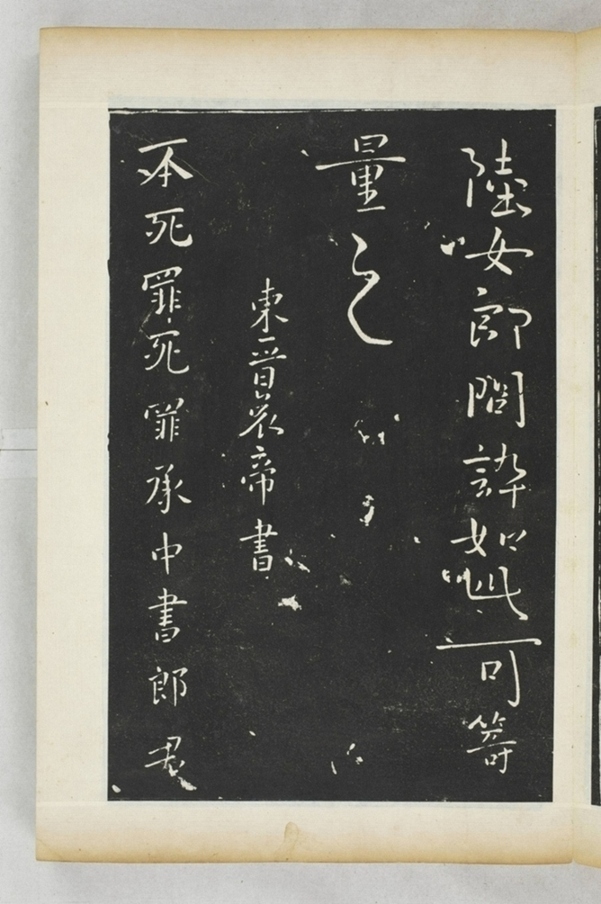 陸女郎問訊如此可籌
量之
東晉哀帝書
丕死罪死罪承中書郎君